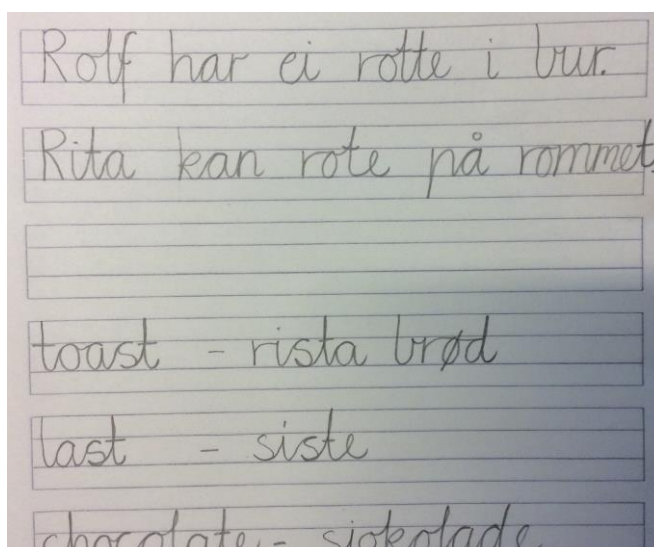 Rolf har ei rotte i bur.
Rita kan rote på rommet.
toast - rista brød
last - siste
chocolate - sjokolade